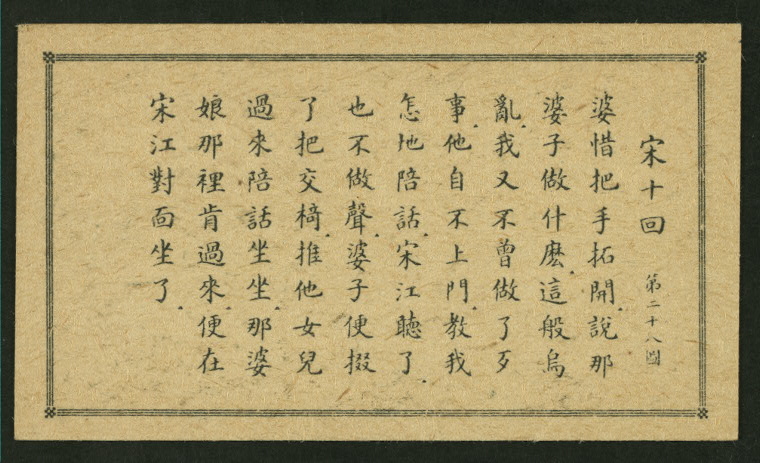 宋十回
第二十八圖
婆惜把手拓開.說那
婆子做什麽.這般烏
亂.我又不曾做了歹
事.他自不上門.教我
怎地陪話.宋江聴了.
也不做聲.婆子便掇
了把交椅.推他女兒
過來陪話坐坐.那婆
娘那裡肯過來.便在
宋江對面坐了.